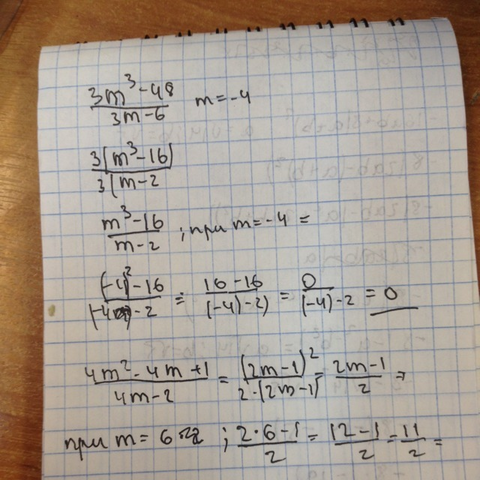 3m³-48 / 3m-6 m=-4
3(m³-16) / 3(m-2
m³-16 / m-2 ; при m=-4 =
(-4)²-16 / (-4)-2 = 16-16 / (-4)-2) = 0 / (-4)-2 = 0
4m²-4m+1 / 4m-2 = (2m-1)² / 2·(2m-1) = 2m-1 / 2 =
при m= 6 ; 2·6-1 / 2 = 12-1 / 2 = 11 / 2 =